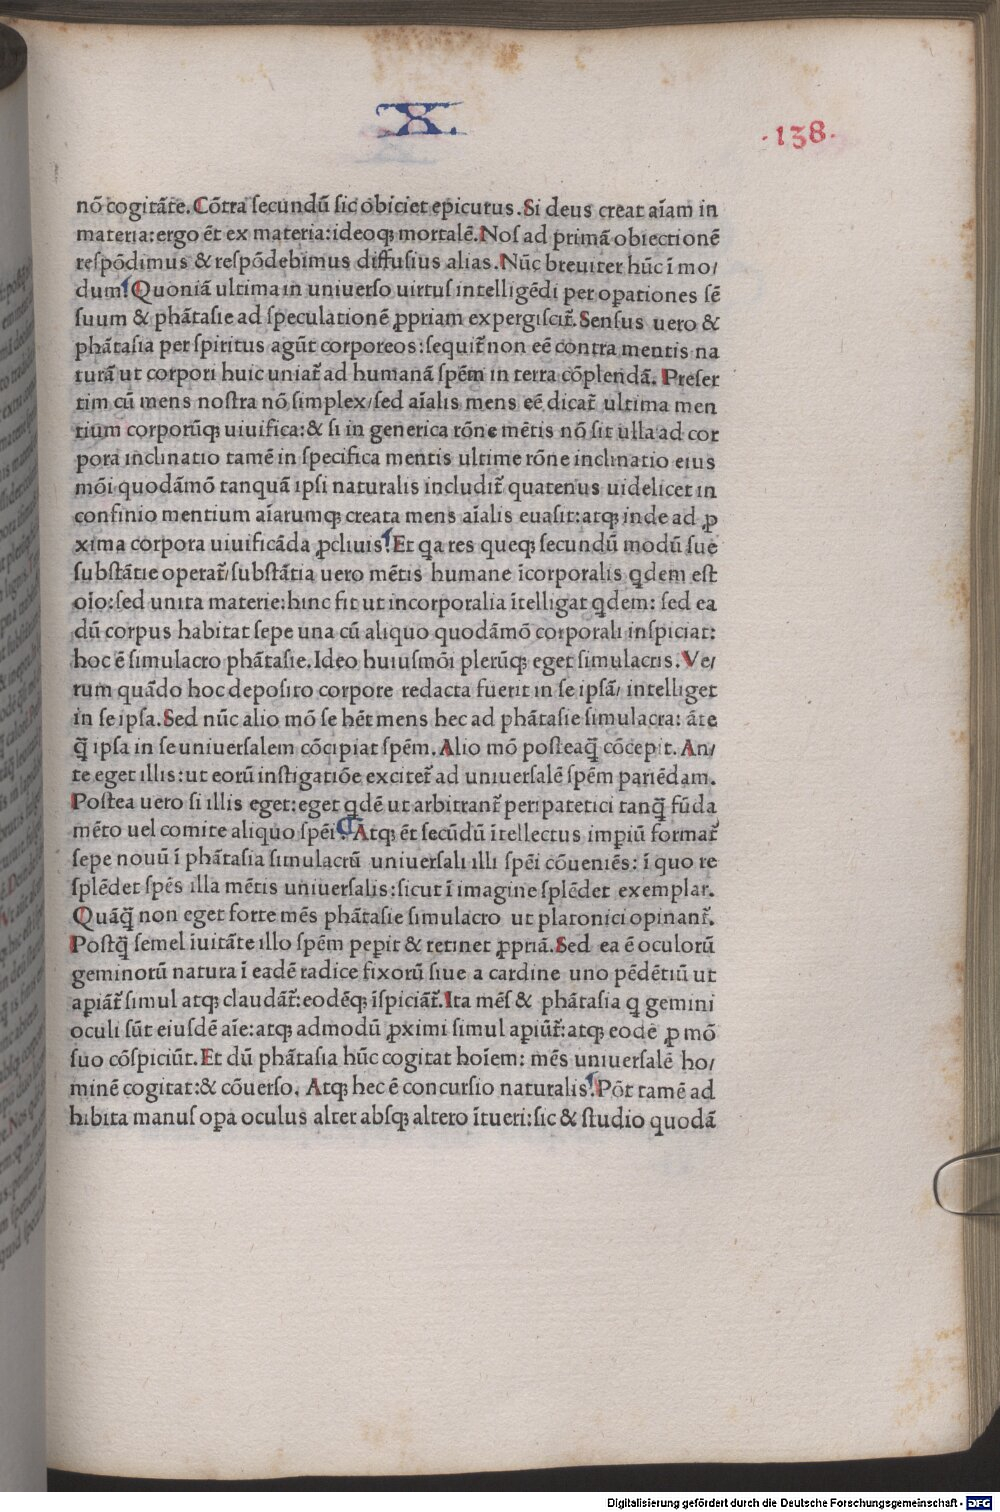 X.
·138·
nō cogitāte. Cōtra ſecundū ſic obiciet epicurus. Si deus creat aīam in
materia: ergo ēt ex materia: ideoq; mortalē. Noſ ad primā obiectionē
reſpōdimus & reſpōdebimus diffuſius alias. Nūc breuiter hūc ī mo/
dum. Quoniā ultima in uniuerſo uirtuſ intelligēdi per operationes ſē
ſuum & phātaſie ad ſpeculationē ꝓpriam expergiſcit̄. Senſus uero &
phātaſia per ſpiritus agūt corporeos: ſequit̄ non eē contra mentis na
turā ut corpori huic uniat̄ ad humanā ſpēm in terra cōplendā. Preſer
tim cū mens noſtra nō ſimplex/ ſed aīalis mens eē dicat̄ ultima men
tium corporūq; uiuifica: & ſi in generica rōne mētis nō ſit ulla ad cor
pora inclinatio tamē in ſpecifica mentis ultime rōne inclinatio eius
mōi quodāmō tanquā ipſi naturalis includit̄ quatenus uidelicet in
confinio mentium aīarumq; creata mens aīalis euaſit: atq; inde ad ꝓ
xima corpora uiuificāda ꝓcliuis. Et qa res queq; ſecundū modū ſue
ſubſtātie operat̄/ ſubſtātia uero mētis humane īcorporalis qdem eſt
oīo: ſed unita materie: hinc fit ut incorporalia ītelligat qdem: ſed ea
dū corpus habitat ſepe una cū aliquo quodāmō corporali inſpiciat:
hoc ē ſimulacro phātaſie. Ideo huiuſmōi plerūq; eget ſimulacris. Ve/
rum quādo hoc depoſito corpore redacta fuerit in ſe ipſā/ intelliget
in ſe ipſa. Sed nūc alio mō ſe hēt mens hec ad phātaſie ſimulacra: āte
q̄ ipſa in ſe uniuerſalem cōcipiat ſpēm. Alio mō poſteaq̄ cōcepit. An/
te eget illis: ut eorū inſtigatiōe excitet̄ ad uniuerſalē ſpēm pariēdam.
Poſtea uero ſi illis eget: eget qdē ut arbitrant̄ peripatetici tanq̄ fūda
mēto uel comite aliquo ſpēi. Atq; ēt ſecūdū ītellectus impiū format̄
ſepe nouū ī phātaſia ſimulacrū uniuerſali illi ſpēi cōueniēs: ī quo re
ſplēdet ſpēs illa mētis uniuerſalis: ſicut ī imagine ſplēdet exemplar.
Quāq̄ non eget forte mēs phātaſie ſimulacro ut platonici opinant̄.
Poſtq̄ ſemel iuitāte illo ſpēm peꝑit & retinet ꝓpriā. Sed ea ē oculorū
geminorū natura ī eadē radice fixorū ſiue a cardine uno pēdētiū ut
aꝑiāt̄ ſimul atq; claudāt̄: eodēq; īſpiciāt̄. Ita mēſ & phātaſia q gemini
oculi ſūt eiuſdē aīe: atq; admodū ꝓximi ſimul aꝑiūt̄: atq; eodē ꝓ mō
ſuo cōſpiciūt. Et dū phātaſia hūc cogitat hoīem: mēs uniuerſalē ho/
minē cogitat: & cōuerſo. Atq; hec ē concurſio naturalis. Pōt tamē ad
hibita manuſ oꝑa oculus alter abſq; altero ītueri: ſic & ſtudio quodā
Digitalisierung gefördert durch die Deutsche Forschungsgemeinschaft - DFG